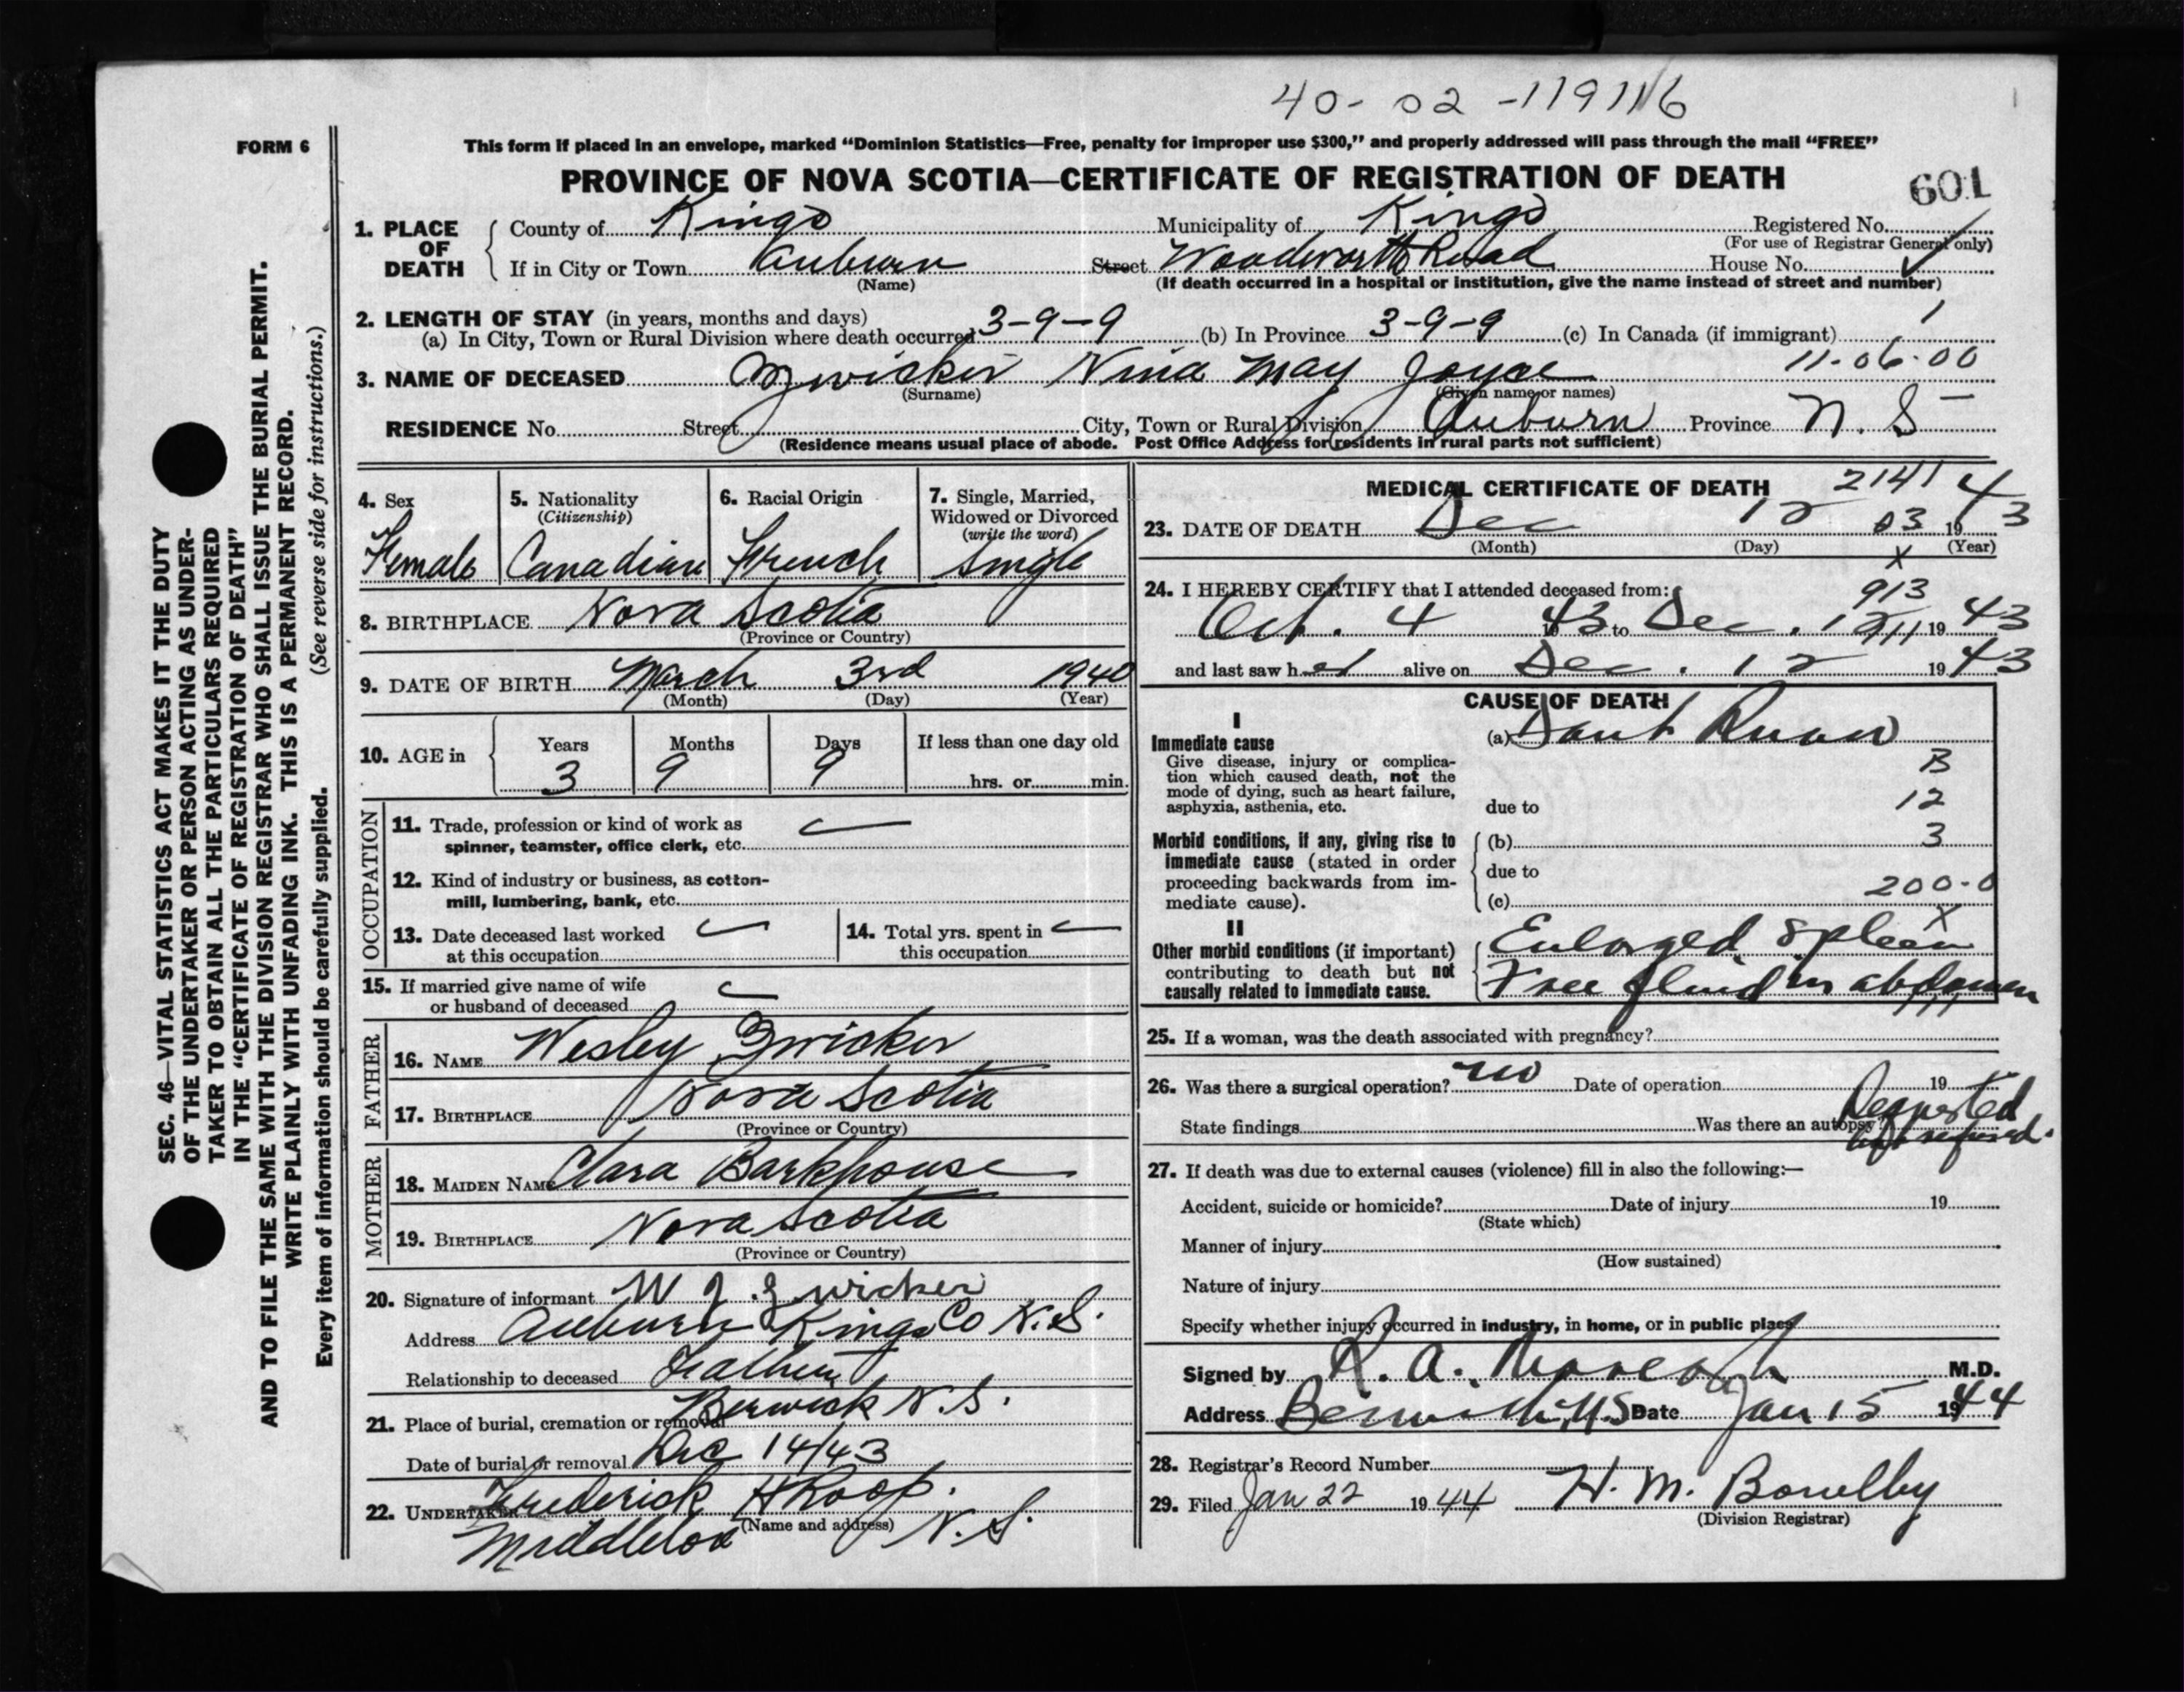 40-02-119116
FORM 6
This form if placed in an envelope, marked “Dominion Statistics—Free, penalty for improper use $300,” and properly addressed will pass through the mail “FREE”
PROVINCE OF NOVA SCOTIA—CERTIFICATE OF REGISTRATION OF DEATH
601
1. PLACE OF DEATH
County of Kings Municipality of Kings Registered No.
(For use of Registrar General only)
If in City or Town Auburn Street Woodworth Road House No.
(Name) (If death occurred in a hospital or institution, give the name instead of street and number)
2. LENGTH OF STAY (in years, months and days)
(a) In City, Town or Rural Division where death occurred 3-9-9 (b) In Province 3-9-9 (c) In Canada (if immigrant)
11-06-00
3. NAME OF DECEASED Zwicker Nina May Joyce
(Surname) (Given name or names)
RESIDENCE No. Street City, Town or Rural Division Auburn Province N. S
(Residence means usual place of abode. Post Office Address for residents in rural parts not sufficient)
4. Sex Female
5. Nationality (Citizenship) Canadian
6. Racial Origin French
7. Single, Married, Widowed or Divorced (write the word) Single
8. BIRTHPLACE Nova Scotia
(Province or Country)
9. DATE OF BIRTH March 3rd 1940
(Month) (Day) (Year)
10. AGE in Years 3 Months 9 Days 9 If less than one day old
hrs. or min.
OCCUPATION
11. Trade, profession or kind of work as
spinner, teamster, office clerk, etc.
12. Kind of industry or business, as cotton-
mill, lumbering, bank, etc.
13. Date deceased last worked
at this occupation
14. Total yrs. spent in
this occupation
15. If married give name of wife
or husband of deceased
FATHER
16. NAME Wesley Zwicker
17. BIRTHPLACE Nova Scotia
(Province or Country)
MOTHER
18. MAIDEN NAME Clara Barkhouse
19. BIRTHPLACE Nova Scotia
(Province or Country)
20. Signature of informant W J Zwicker
Address Auburn Kings Co N.S.
Relationship to deceased Father
21. Place of burial, cremation or removal Berwick N.S.
Date of burial or removal Dec 14/43
22. UNDERTAKER Frederick H Roop.
(Name and address)
Middleton N.S.
MEDICAL CERTIFICATE OF DEATH
2141
23. DATE OF DEATH Dec 12 1943
03
(Month) (Day) (Year)
x
24. I HEREBY CERTIFY that I attended deceased from:
913
Oct. 4 1943 to Dec. 12 1943
and last saw her alive on Dec. 12 1943
CAUSE OF DEATH
I
Immediate cause
Give disease, injury or complica-
tion which caused death, not the
mode of dying, such as heart failure,
asphyxia, asthenia, etc.
(a) Dont Know
B
due to 12
Morbid conditions, if any, giving rise to
immediate cause (stated in order
proceeding backwards from im-
mediate cause).
(b) 3
due to
200-0
(c)
x
II
Other morbid conditions (if important)
contributing to death but not
causally related to immediate cause.
Enlarged Spleen
Free fluid in abdomen
25. If a woman, was the death associated with pregnancy?
26. Was there a surgical operation? no Date of operation 19
State findings Was there an autopsy? Requested but refused.
27. If death was due to external causes (violence) fill in also the following:—
Accident, suicide or homicide? Date of injury 19
(State which)
Manner of injury
(How sustained)
Nature of injury
Specify whether injury occurred in industry, in home, or in public place
Signed by R. A. M.D.
Address Berwick, N.S Date Jan 15 1944
28. Registrar's Record Number
29. Filed Jan 22 1944 H. M.
(Division Registrar)
SEC. 46—VITAL STATISTICS ACT MAKES IT THE DUTY
OF THE UNDERTAKER OR PERSON ACTING AS UNDER-
TAKER TO OBTAIN ALL THE PARTICULARS REQUIRED
IN THE “CERTIFICATE OF REGISTRATION OF DEATH”
AND TO FILE THE SAME WITH THE DIVISION REGISTRAR WHO SHALL ISSUE THE BURIAL PERMIT.
WRITE PLAINLY WITH UNFADING INK. THIS IS A PERMANENT RECORD.
Every item of information should be carefully supplied. (See reverse side for instructions.)